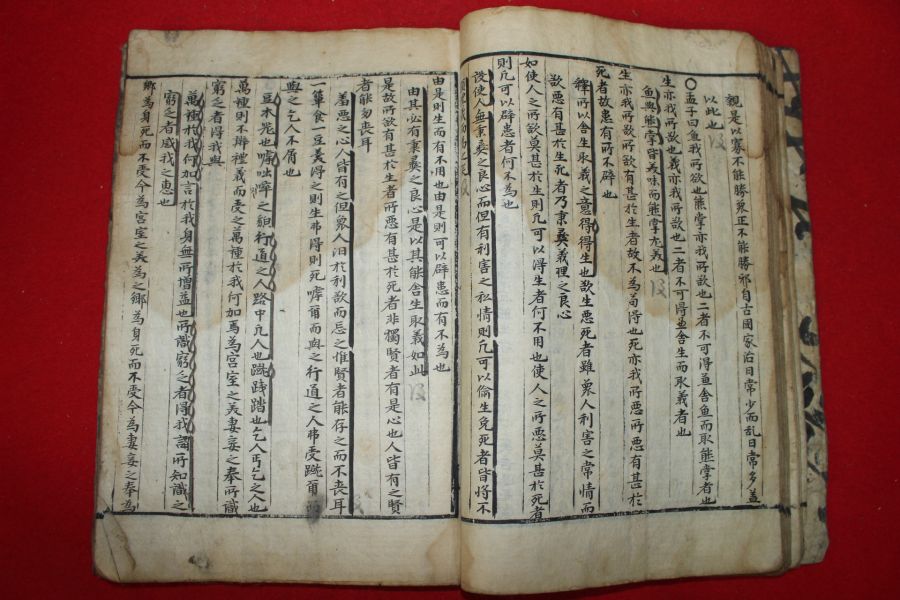 親是以寡不能勝衆正不能勝邪自古國家治日常少而乱日常多盖
以此也
〇孟子曰魚我所欲也熊掌亦我所欲也二者不可得兼舍魚而取熊掌者也
生亦我所欲也義亦我所欲也二者不可得兼舍生而取義者也
魚與熊掌皆美味而熊掌尤美也
生亦我所欲所欲有甚於生者故不為苟得也死亦我所惡所惡有甚於
死者故患有所不辟也
釋所以舍生取義之意得得生也欲生惡死者雖衆人利害之常情而
欲惡有甚於生死者乃秉彛義理之良心
如使人之所欲莫甚於生則凡可以得生者何不用也使人之所惡莫甚於死者
則凡可以辟患者何不為也
設使人無秉彛之良心而但有利害之私情則凡可以偷生免死者皆將不
由是則生而有不用也由是則可以辟患而有不為也
由其必有秉彛之良心是以其能舍生取義如此
是故所欲有甚於生者所惡有甚於死者非獨賢者有是心也人皆有之賢
者能勿丧耳
羞惡之心人皆有之但衆人汨於利欲而忘之惟賢者能存之而不丧耳
簞食一豆羹得之則生弗得則死嘑爾而與之行道之人弗受蹴爾而
與之乞人不屑也
豆木噐也嘑咄啐之貌行道之人路中凡人也蹴踐踏也乞人丐乞之人也
萬種則不辨禮義而受之萬種於我何加焉為宮室之美妻妾之奉所識
窮乏者得我與
萬種於我何加言於我身無所增益也所識窮乏者得我謂所知識之
窮乏者感我之惠也
鄉為身死而不受今為宮室之美為之鄉為身死而不受今為妻妾之奉為